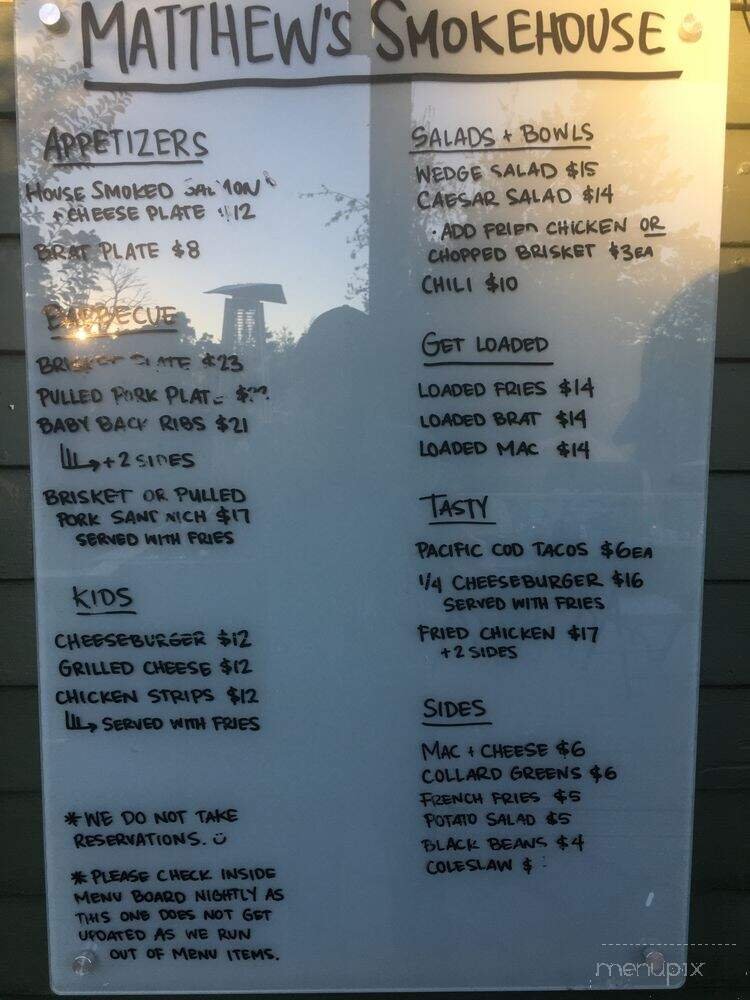 MATTHEW'S SMOKEHOUSE
APPETIZERS
HOUSE SMOKED SALMON
+ CHEESE PLATE $12
BRAT PLATE $8
BARBECUE
BRISKET PLATE $23
PULLED PORK PLATE
BABY BACK RIBS $21
+ 2 SIDES
BRISKET OR PULLED
PORK SANDWICH $17
SERVED WITH FRIES
KIDS
CHEESEBURGER $12
GRILLED CHEESE $12
CHICKEN STRIPS $12
SERVED WITH FRIES
*WE DO NOT TAKE
RESERVATIONS.
*PLEASE CHECK INSIDE
MENU BOARD NIGHTLY AS
THIS ONE DOES NOT GET
UPDATED AS WE RUN
OUT OF MENU ITEMS.
SALADS + BOWLS
WEDGE SALAD $15
CAESAR SALAD $14
· ADD FRIED CHICKEN OR
CHOPPED BRISKET $3EA
CHILI $10
GET LOADED
LOADED FRIES $14
LOADED BRAT $14
LOADED MAC $14
TASTY
PACIFIC COD TACOS $6EA
1/4 CHEESEBURGER $16
SERVED WITH FRIES
FRIED CHICKEN $17
+2 SIDES
SIDES
MAC + CHEESE $6
COLLARD GREENS $6
FRENCH FRIES $5
POTATO SALAD $5
BLACK BEANS $4
COLESLAW $
menupix